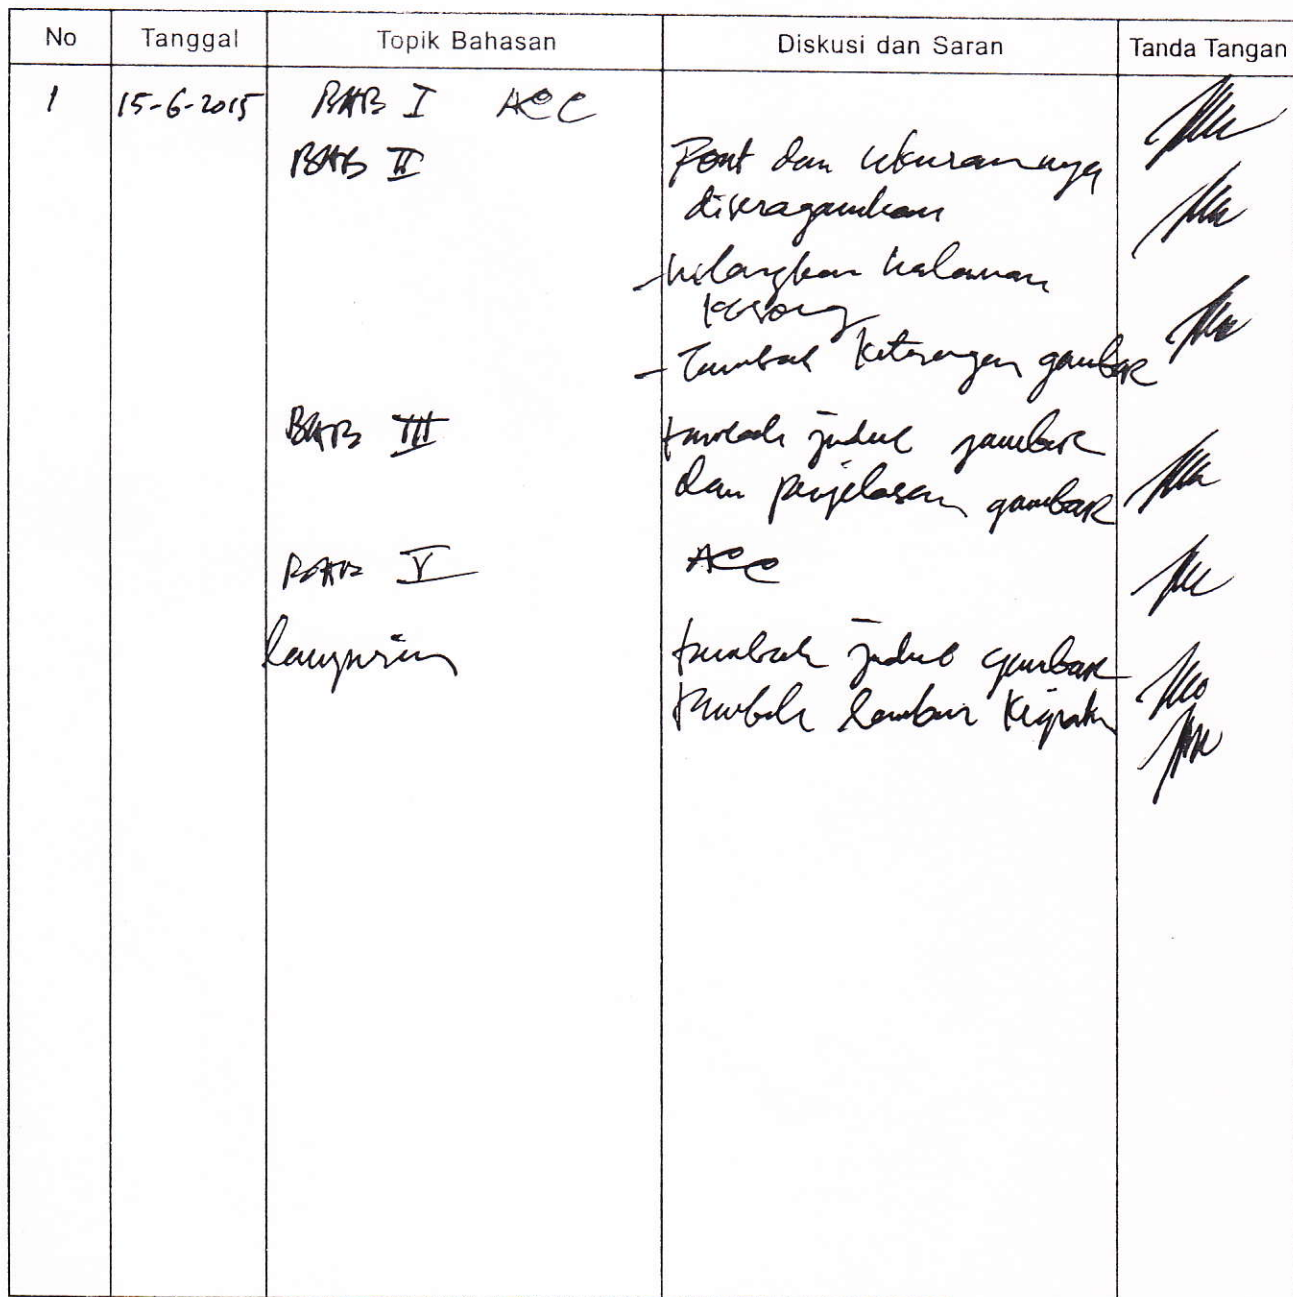 No Tanggal Topik Bahasan Diskusi dan Saran Tanda Tangan
1 15-6-2015 BAB I ACC
BAB II Font dan ukurannya
diseragamkan
- hilangkan halaman
kosong
- Tambah keterangan gambar
BAB III tambah judul gambar
dan penjelasan gambar
BAB V ACC
lampiran tambah judul gambar
tambah lembar